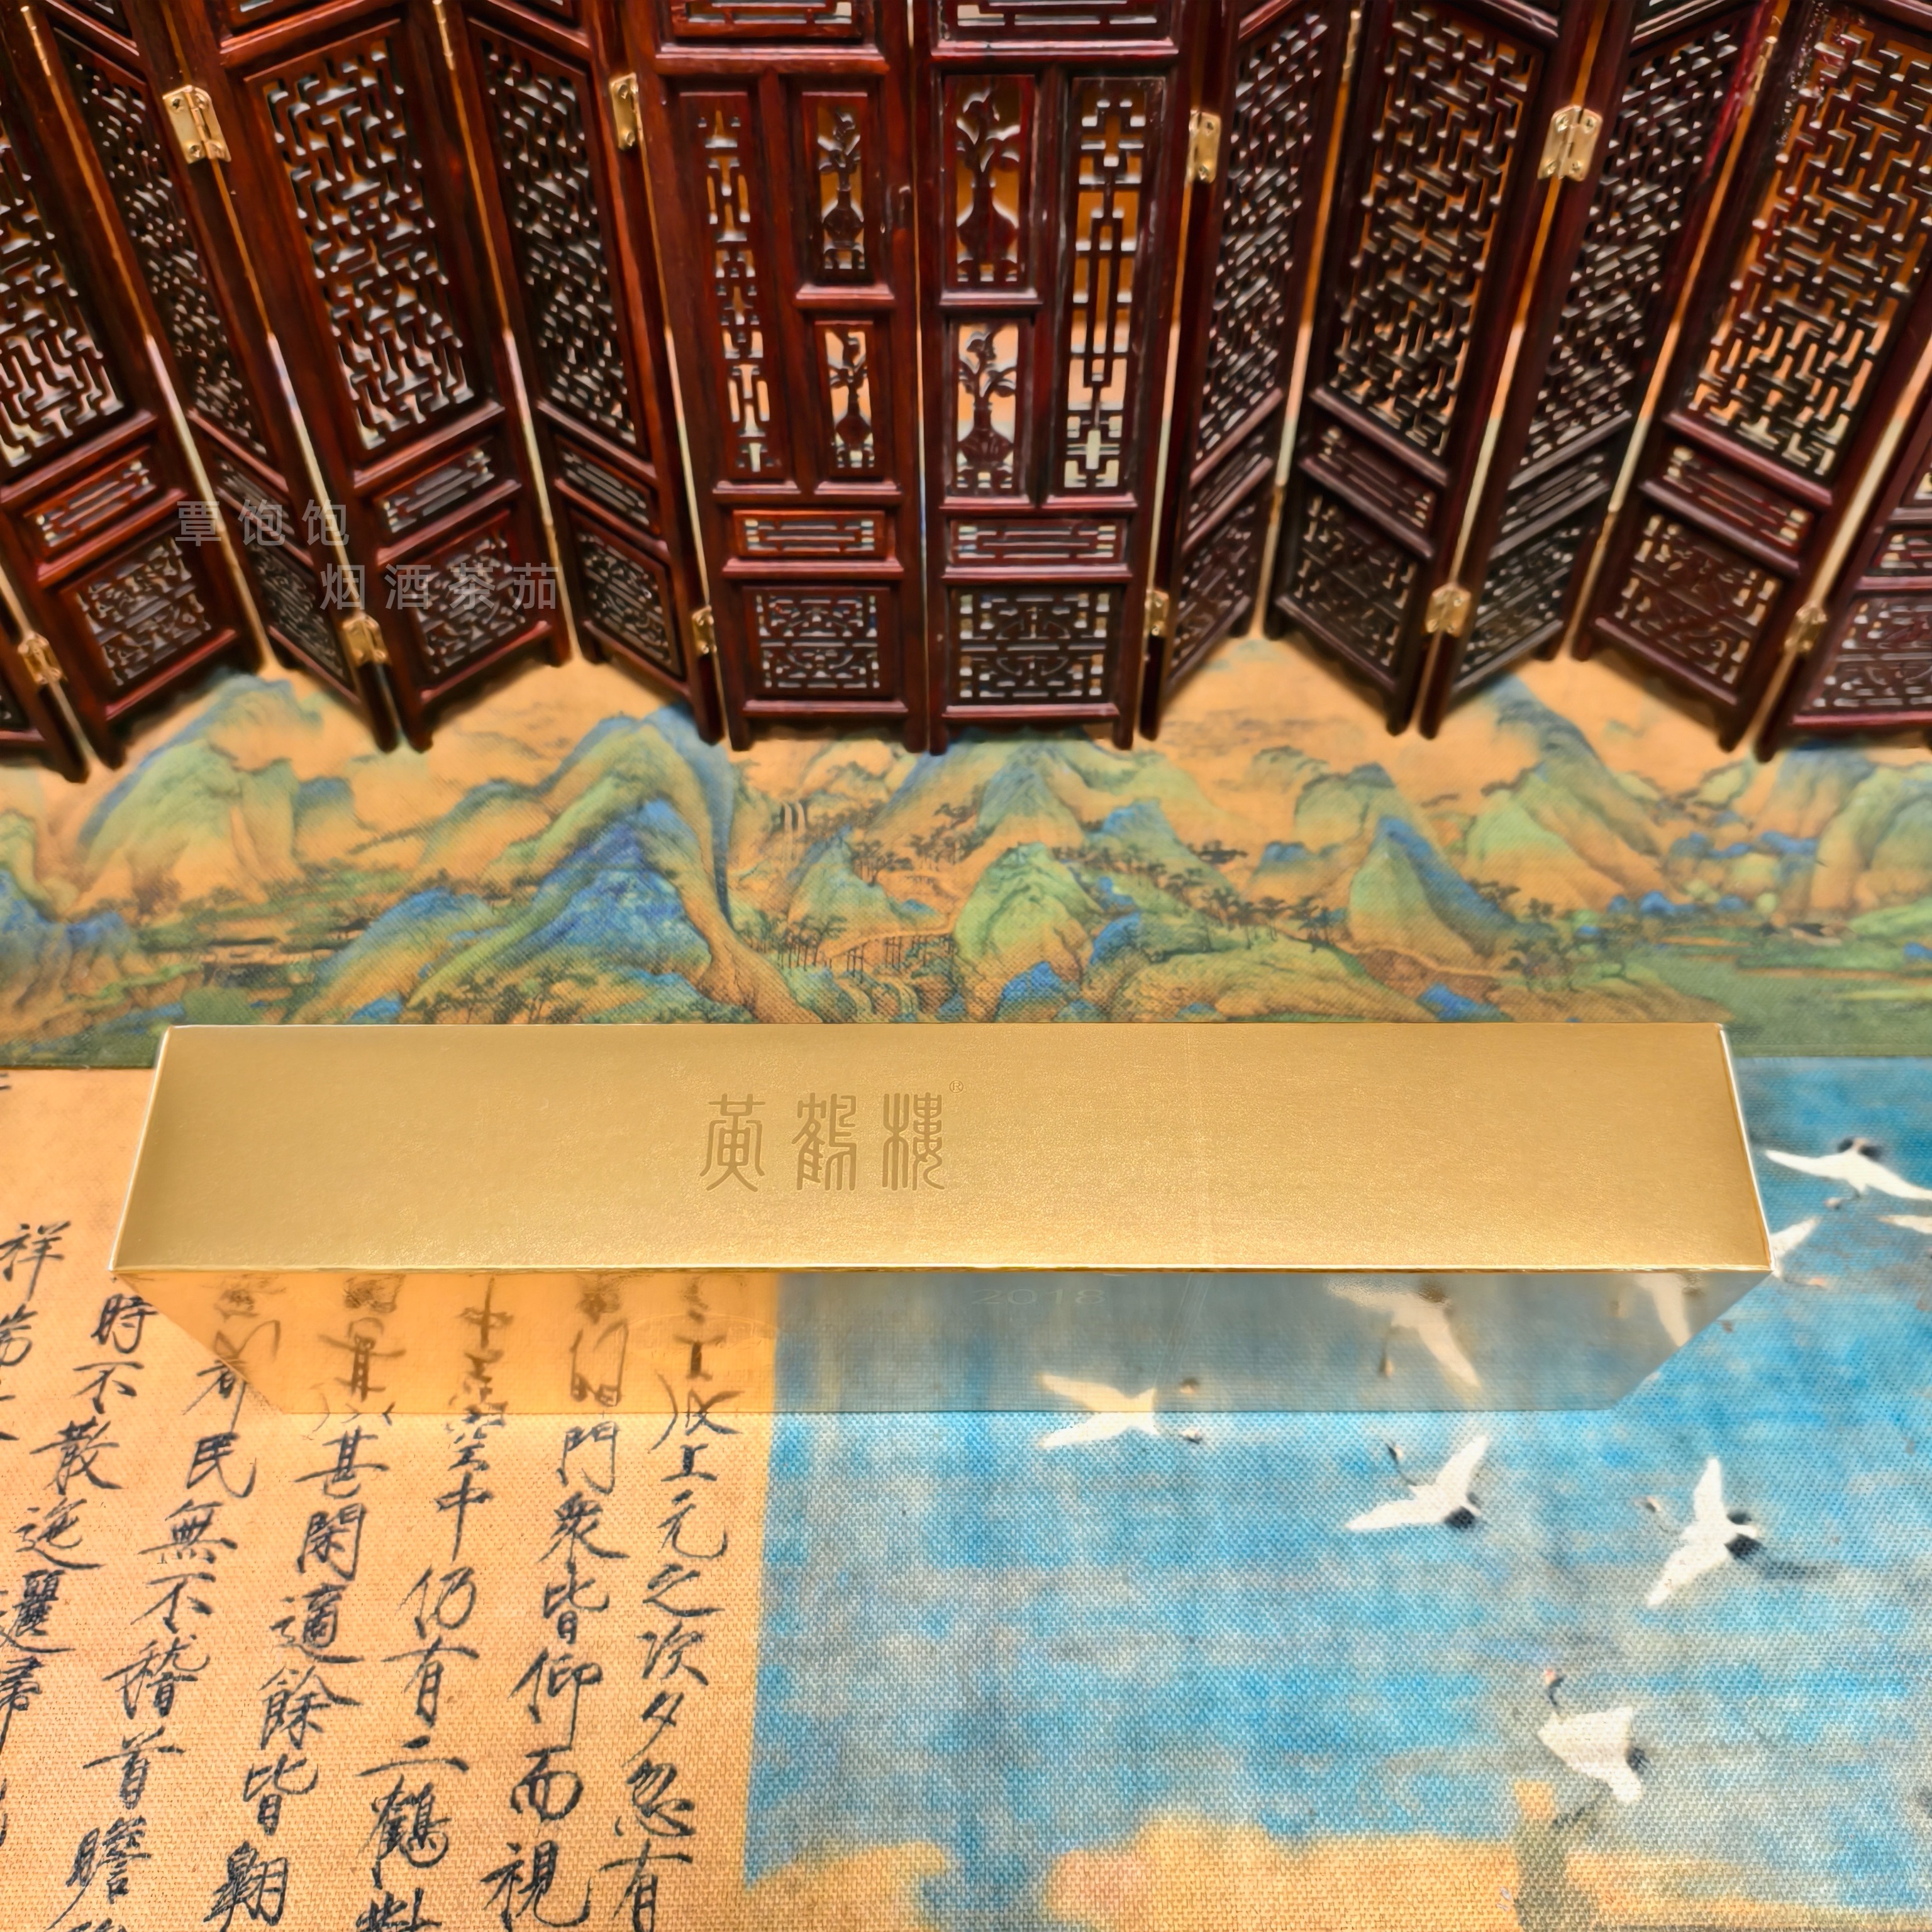 覃饱饱
烟酒茶茄
黃鶴樓®
2018
上元之次夕忽有
門衆皆仰而視
中仍有二鶴
甚閑適餘皆翱
民無不稽首瞻
時不散迤邐歸
祥